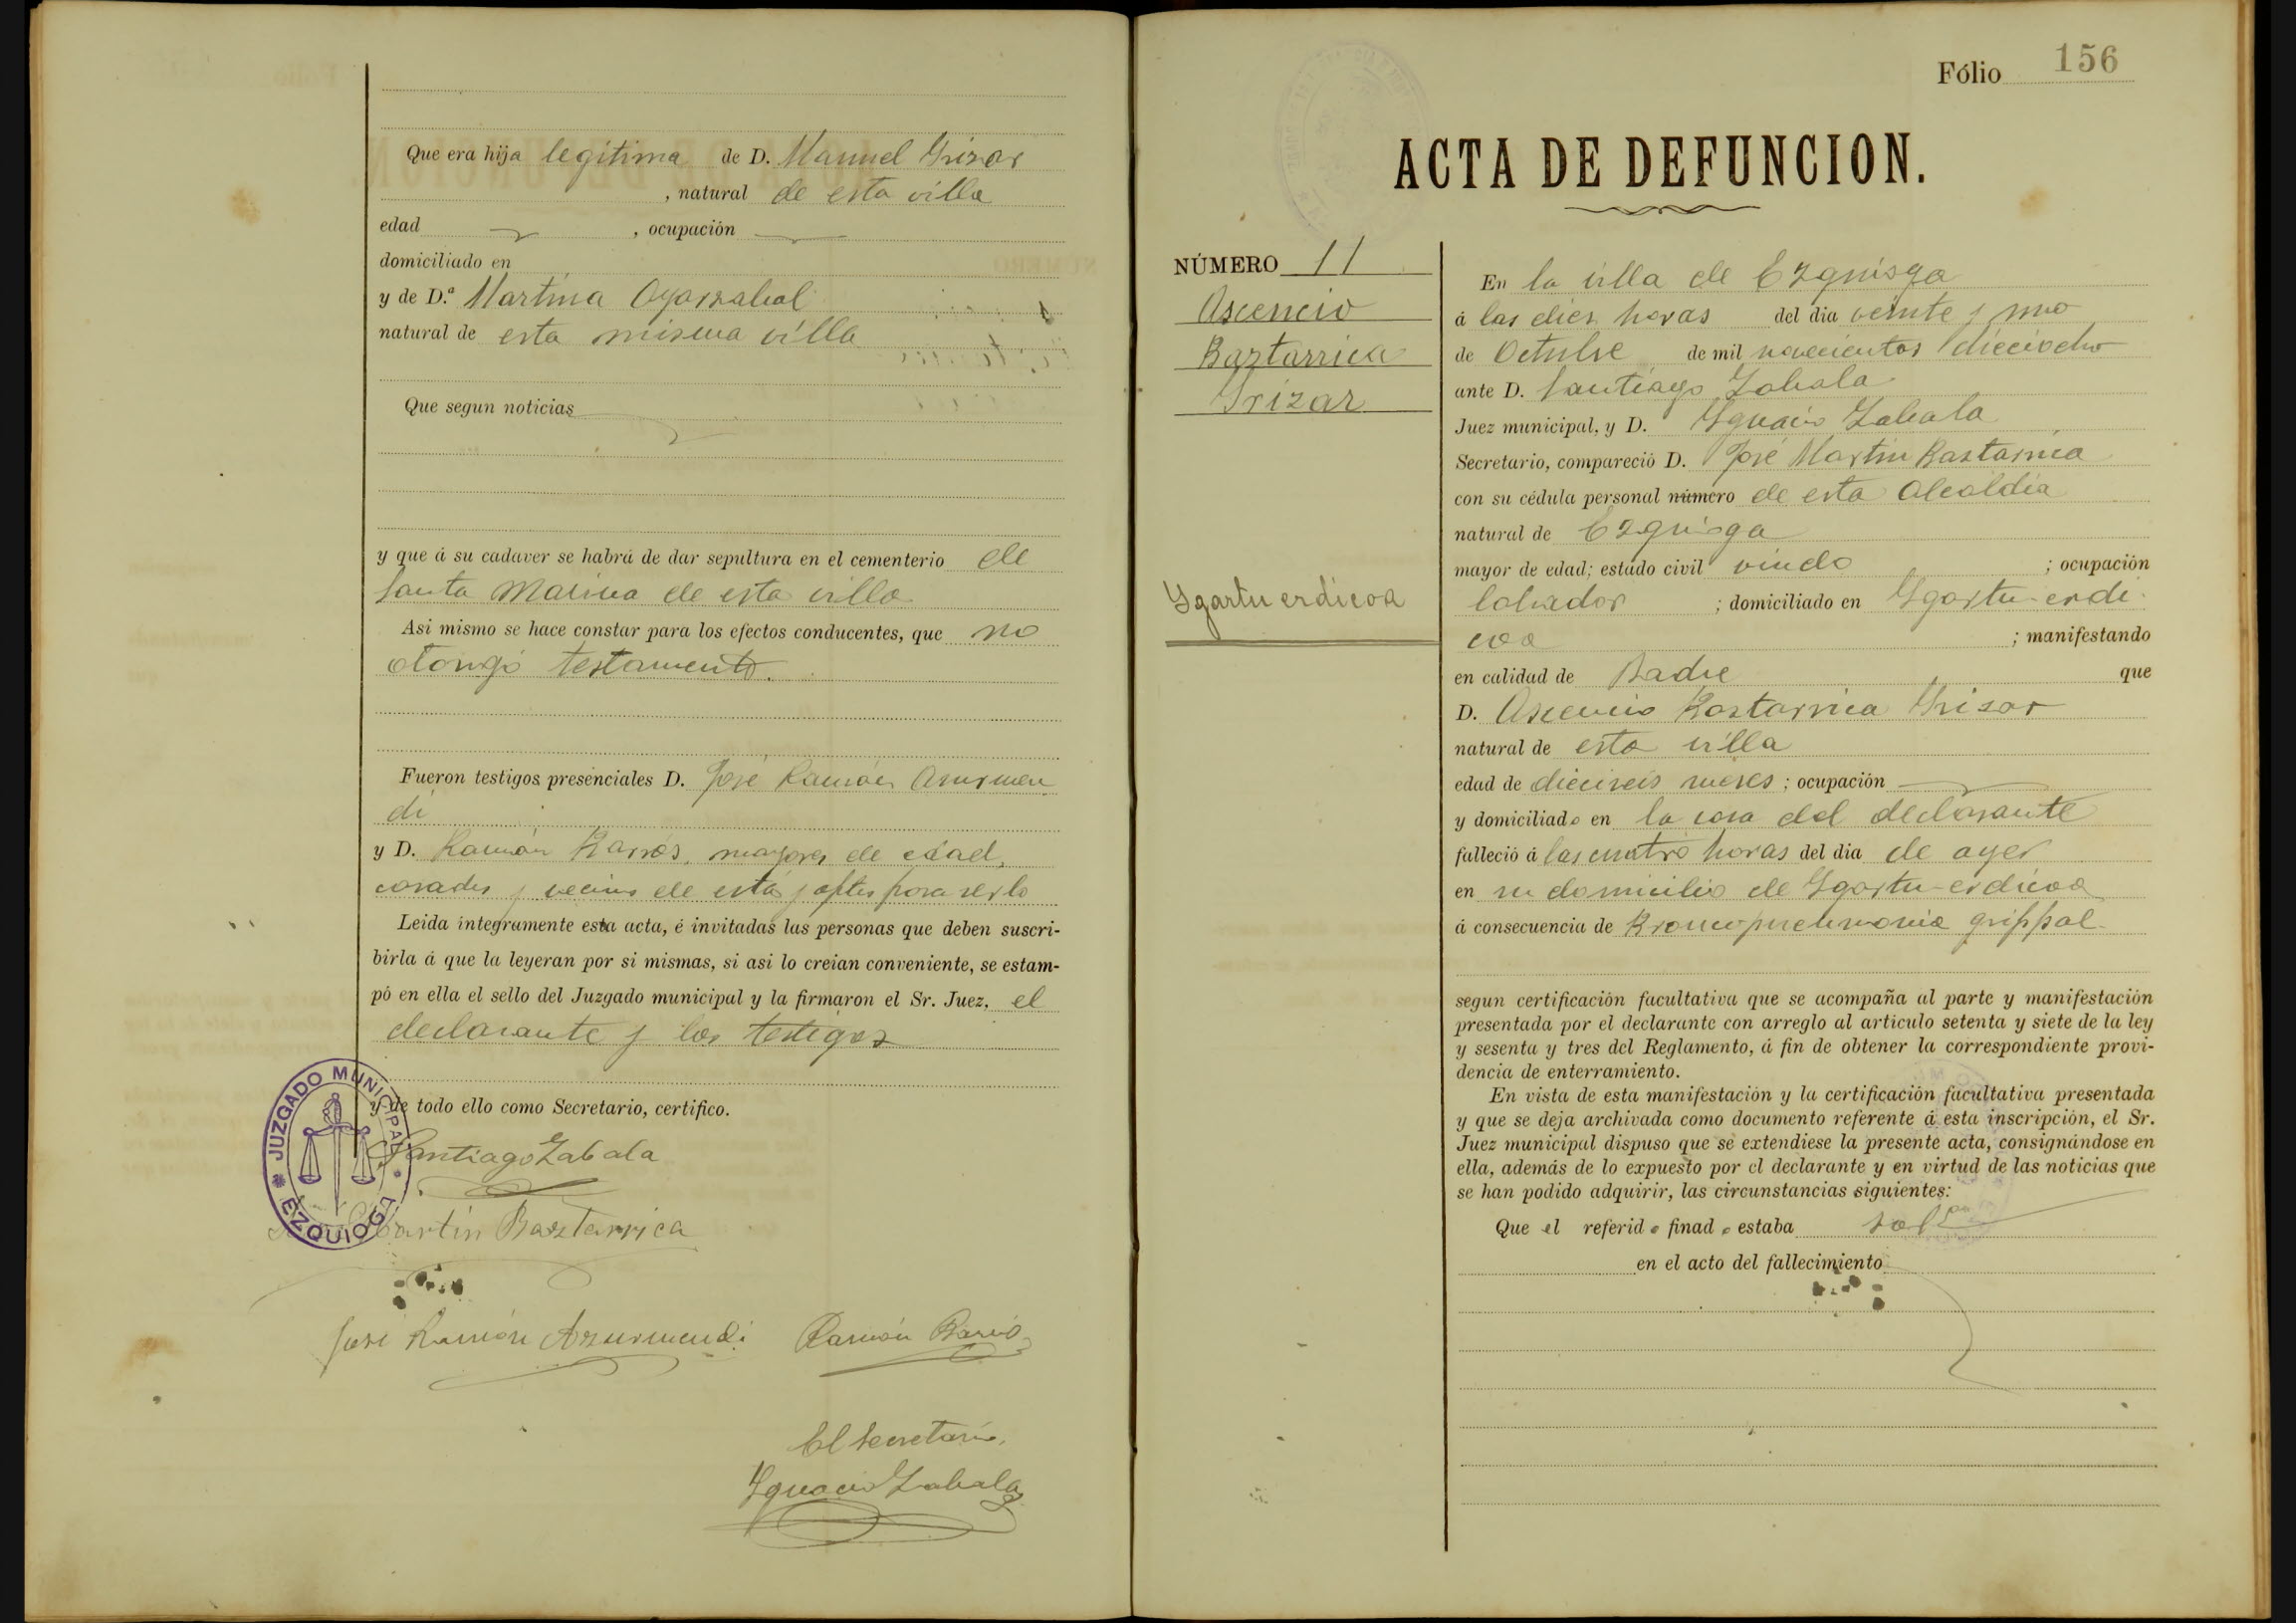 Que era hija legítima de D. Manuel Yrizar
, natural de esta villa
edad , ocupación
domiciliado en
y de D.ª Martina Oyarzabal
natural de esta misma villa
Que segun noticias
y que á su cadaver se habrá de dar sepultura en el cementerio de
Santa Marina de esta villa
Asi mismo se hace constar para los efectos conducentes, que no
otorgó testamento.
Fueron testigos presenciales D. José Ramón Azurmen
di
y D. Ramón Barrios, mayores de edad,
casados y vecinos de esta y aptos para serlo
Leida íntegramente esta acta, é invitadas las personas que deben suscri-
birla á que la leyeran por si mismas, si asi lo creian conveniente, se estam-
pó en ella el sello del Juzgado municipal y la firmaron el Sr. Juez, el
declarante y los testigos
y de todo ello como Secretario, certifico.
JUZGADO MUNICIPAL EZQUIOGA
Santiago Zabala
Martín Baztarrica
José Ramón Azurmendi Ramón Barrio
El Secretario,
Ygnacio Zabala
Fólio 156
ACTA DE DEFUNCION.
NÚMERO 11
Ascencio
Baztarrica
Yrizar
Ygartu erdicoa
En la villa de Ezquioga
á las diez horas del dia veinte y uno
de Octubre de mil novecientos dieciocho
ante D. Santiago Zabala
Juez municipal, y D. Ygnacio Zabala
Secretario, compareció D. José Martin Baztarrica
con su cédula personal número de esta Alcaldía
natural de Ezquioga
mayor de edad; estado civil viudo ; ocupación
labrador ; domiciliado en Ygartu-erdi
coa ; manifestando
en calidad de Padre que
D. Ascencio Baztarrica Yrizar
natural de esta villa
edad de dieciseis meses ; ocupación
y domiciliado en la casa del declarante
falleció á las cuatro horas del dia de ayer
en su domicilio de Ygartu-erdicoa
á consecuencia de Broncopneumonia grippal
segun certificación facultativa que se acompaña al parte y manifestación
presentada por el declarante con arreglo al articulo setenta y siete de la ley
y sesenta y tres del Reglamento, á fin de obtener la correspondiente provi-
dencia de enterramiento.
En vista de esta manifestación y la certificación facultativa presentada
y que se deja archivada como documento referente á esta inscripción, el Sr.
Juez municipal dispuso que se extendiese la presente acta, consignándose en
ella, además de lo expuesto por el declarante y en virtud de las noticias que
se han podido adquirir, las circunstancias siguientes:
Que el referido finado estaba
en el acto del fallecimiento